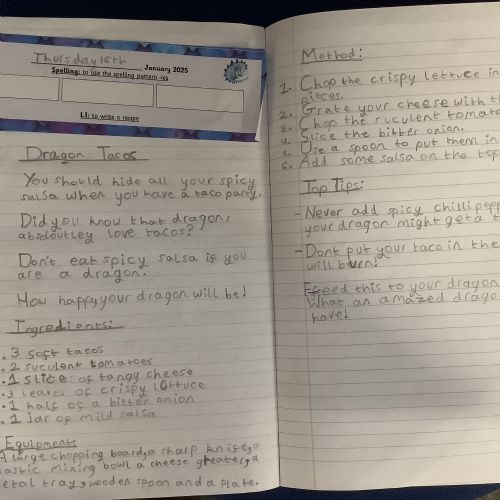 Thursday 16th January 2025
Spelling: to use the spelling pattern -ies
LI: to write a recipe
Dragon Tacos
You should hide all your spicy
salsa when you have a taco party.
Did you know that dragons
absoloutley love tacos?
Don't eat spicy salsa if you
are a dragon.
How happy your dragon will be!
Ingredients:
. 3 soft tacos
. 2 succulent tomatoes
. 1 slice of tangy cheese
. 3 leaves of crispy lettuce
. 1 half of a bitter onion
. 1 jar of mild salsa
Equipment:
A large chopping board, a sharp knife, a
plastic mixing bowl a cheese greater, a
metal tray, wooden spoon and a plate.
Method:
1. Chop the crispy lettuce in
pieces.
2. Grate your cheese with th
3. Chop the succulent tomato
4. Slice the bitter onion.
5. Use a spoon to put them in
6. Add some salsa on the top
Top Tips:
- Never add spicy chilli pepp
your dragon might get a t
- Dont put your taco in the
will burn!
Feed this to your dragon
What an amazed drago
have!